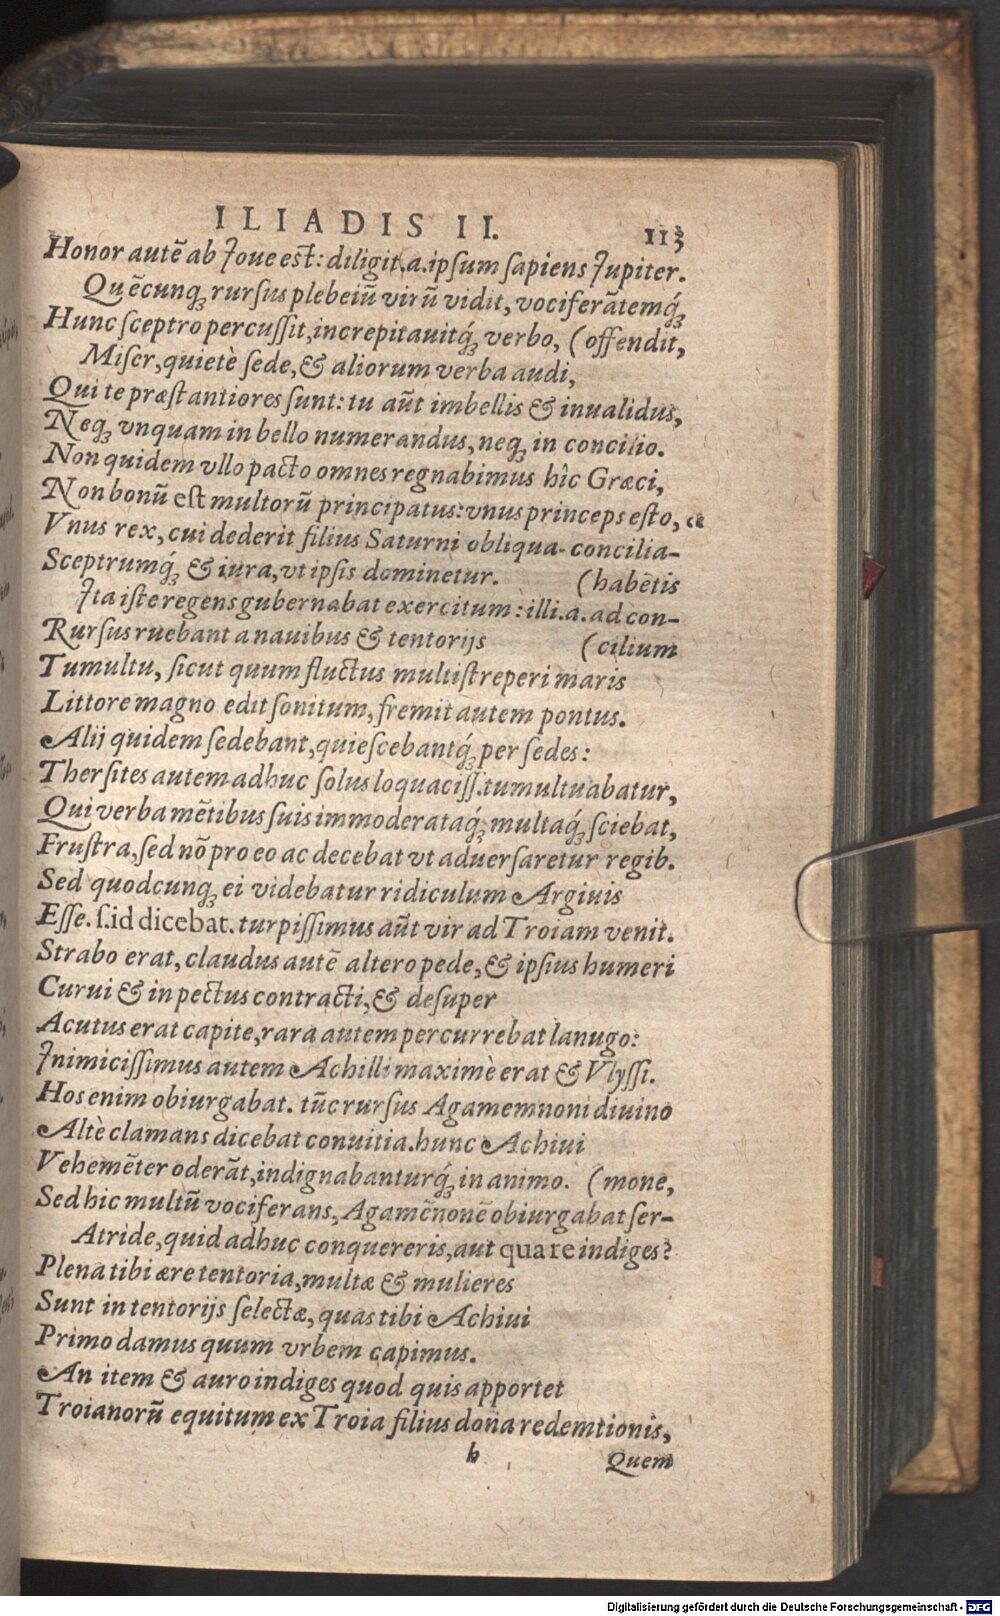 ILIADIS II. 113
Honor autē ab Joue est: diligit.a.ipsum sapiens Jupiter.
Quēcunq́; rursus plebeiū virū vidit, vociferātemq́;
Hunc sceptro percussit, increpitauitq́; verbo, (offendit,
Miser, quietè sede, & aliorum verba audi,
Qui te præstantiores sunt: tu aūt imbellis & inualidus,
Neq; vnquam in bello numerandus, neq; in concilio.
Non quidem vllo pacto omnes regnabimus hîc Græci,
Non bonū est multorū principatus: vnus princeps esto,
Vnus rex, cui dederit filius Saturni obliqua concilia-
Sceptrumq́; & iura, vt ipsis dominetur. (habētis
Jta iste regens gubernabat exercitum: illi.a.ad con-
Rursus ruebant a nauibus & tentorijs (cilium
Tumultu, sicut quum fluctus multistreperi maris
Littore magno edit sonitum, fremit autem pontus.
Alij quidem sedebant, quiescebantq́; per sedes:
Thersites autem adhuc solus loquaciss. tumultuabatur,
Qui verba mētibus suis immoderataq́; multaq́; sciebat,
Frustra, sed nō pro eo ac decebat vt aduersaretur regib.
Sed quodcunq; ei videbatur ridiculum Argiuis
Esse. s. id dicebat. turpissimus aūt vir ad Troiam venit.
Strabo erat, claudus autē altero pede, & ipsius humeri
Curui & in pectus contracti, & desuper
Acutus erat capite, rara autem percurrebat lanugo:
Jnimicissimus autem Achilli maximè erat & Vlyssi.
Hos enim obiurgabat. tūc rursus Agamemnoni diuino
Altè clamans dicebat conuitia. hunc Achiui
Vehemēter oderāt, indignabanturq́; in animo. (mone,
Sed hic multū vociferans, Agamēnonē obiurgabat ser-
Atride, quid adhuc conquereris, aut quare indiges?
Plena tibi ære tentoria, multæ & mulieres
Sunt in tentorijs selectæ, quas tibi Achiui
Primo damus quum vrbem capimus.
An item & auro indiges quod quis apportet
Troianorū equitum ex Troia filius dona redemtionis,
h Quem
Digitalisierung gefördert durch die Deutsche Forschungsgemeinschaft - DFG